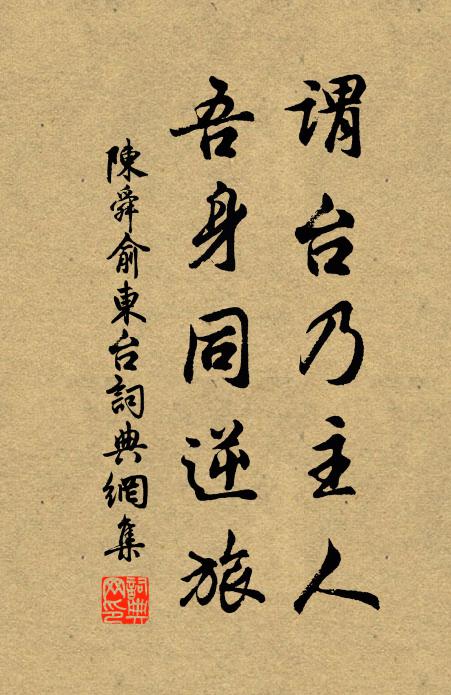 謂台乃主人
吾身同逆旅
陳舜俞東台詞典網集
詞典网印